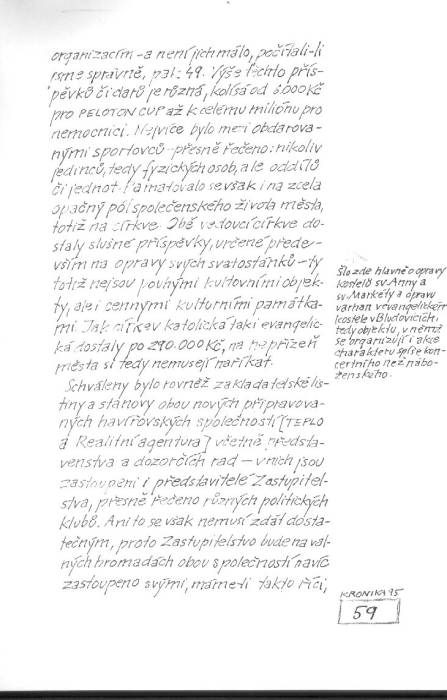 organizacím - a není jich málo, počítali-li
jsme správně, pak 49. Výše těchto přís-
pěvků či darů je různá, kolísá od 6.000 Kč
pro PELOTON CUP až k celému miliónu pro
nemocnici. Nejvíce bylo mezi obdarova-
nými sportovců - přesně řečeno: nikoliv
jedinců, tedy fyzických osob, ale oddílů
či jednot. Pamatovalo se však i na zcela
opačný pól společenského života města,
totiž na církve. Obě vedoucí církve do-
staly slušné příspěvky, určené přede-
vším na opravy svých svatostánků - ty
totiž nejsou pouhými kultovními objek-
ty, ale i cennými kulturními památka-
mi. Jak církev katolická tak i evangelic-
ká dostaly po 290.000 Kč, na nepřízeň
města si tedy nemusejí naříkat.
Schváleny bylo rovněž zakladatelské lis-
tiny a stanovy obou nových připravova-
ných havířovských společností (TEPLO
a Realitní agentura) včetně předsta-
venstva a dozorčích rad - v nich jsou
zastoupeni i představitelé Zastupitel-
stva, přesně řečeno různých politických
klubů. Ani to se však nemusí zdát dosta-
tečným, proto Zastupitelstvo bude na val-
ných hromadách obou společností navíc
zastoupeno svými, máme-li takto říci,
Šlo zde hlavně o opravy
kostelů sv. Anny a
sv. Markéty a opravu
varhan v evangelickém
kostele v Bludovicích,
tedy objektu, v němž
se organizují i akce
charakteru spíše kon-
certního než nábo-
ženského.
KRONIKA 95
59